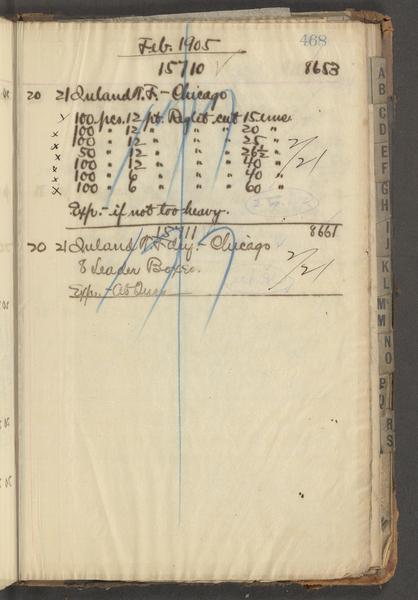 Feb. 1905 468
15710 8653
20 21 Inland T.F. - Chicago
x 100 pcs. 12 pt. Right cut 15 ems
x 100 " 12 " " " 20 "
x 100 " 12 " " " 25 "
x 50 " 12 " " " 26½ "
x 100 " 12 " " " 40 "
x 100 " 6 " " " 40 "
x 100 " 6 " " " 60 "
2/21
Exp. - if not too heavy.
15711 8661
20 21 Inland T.F. - Chicago
8 Leader Boxes.
2/21
Exp. -
A
B
C
D
E
F
G
H
I
J
K
L
M
M
N
O
P
Q
R
S